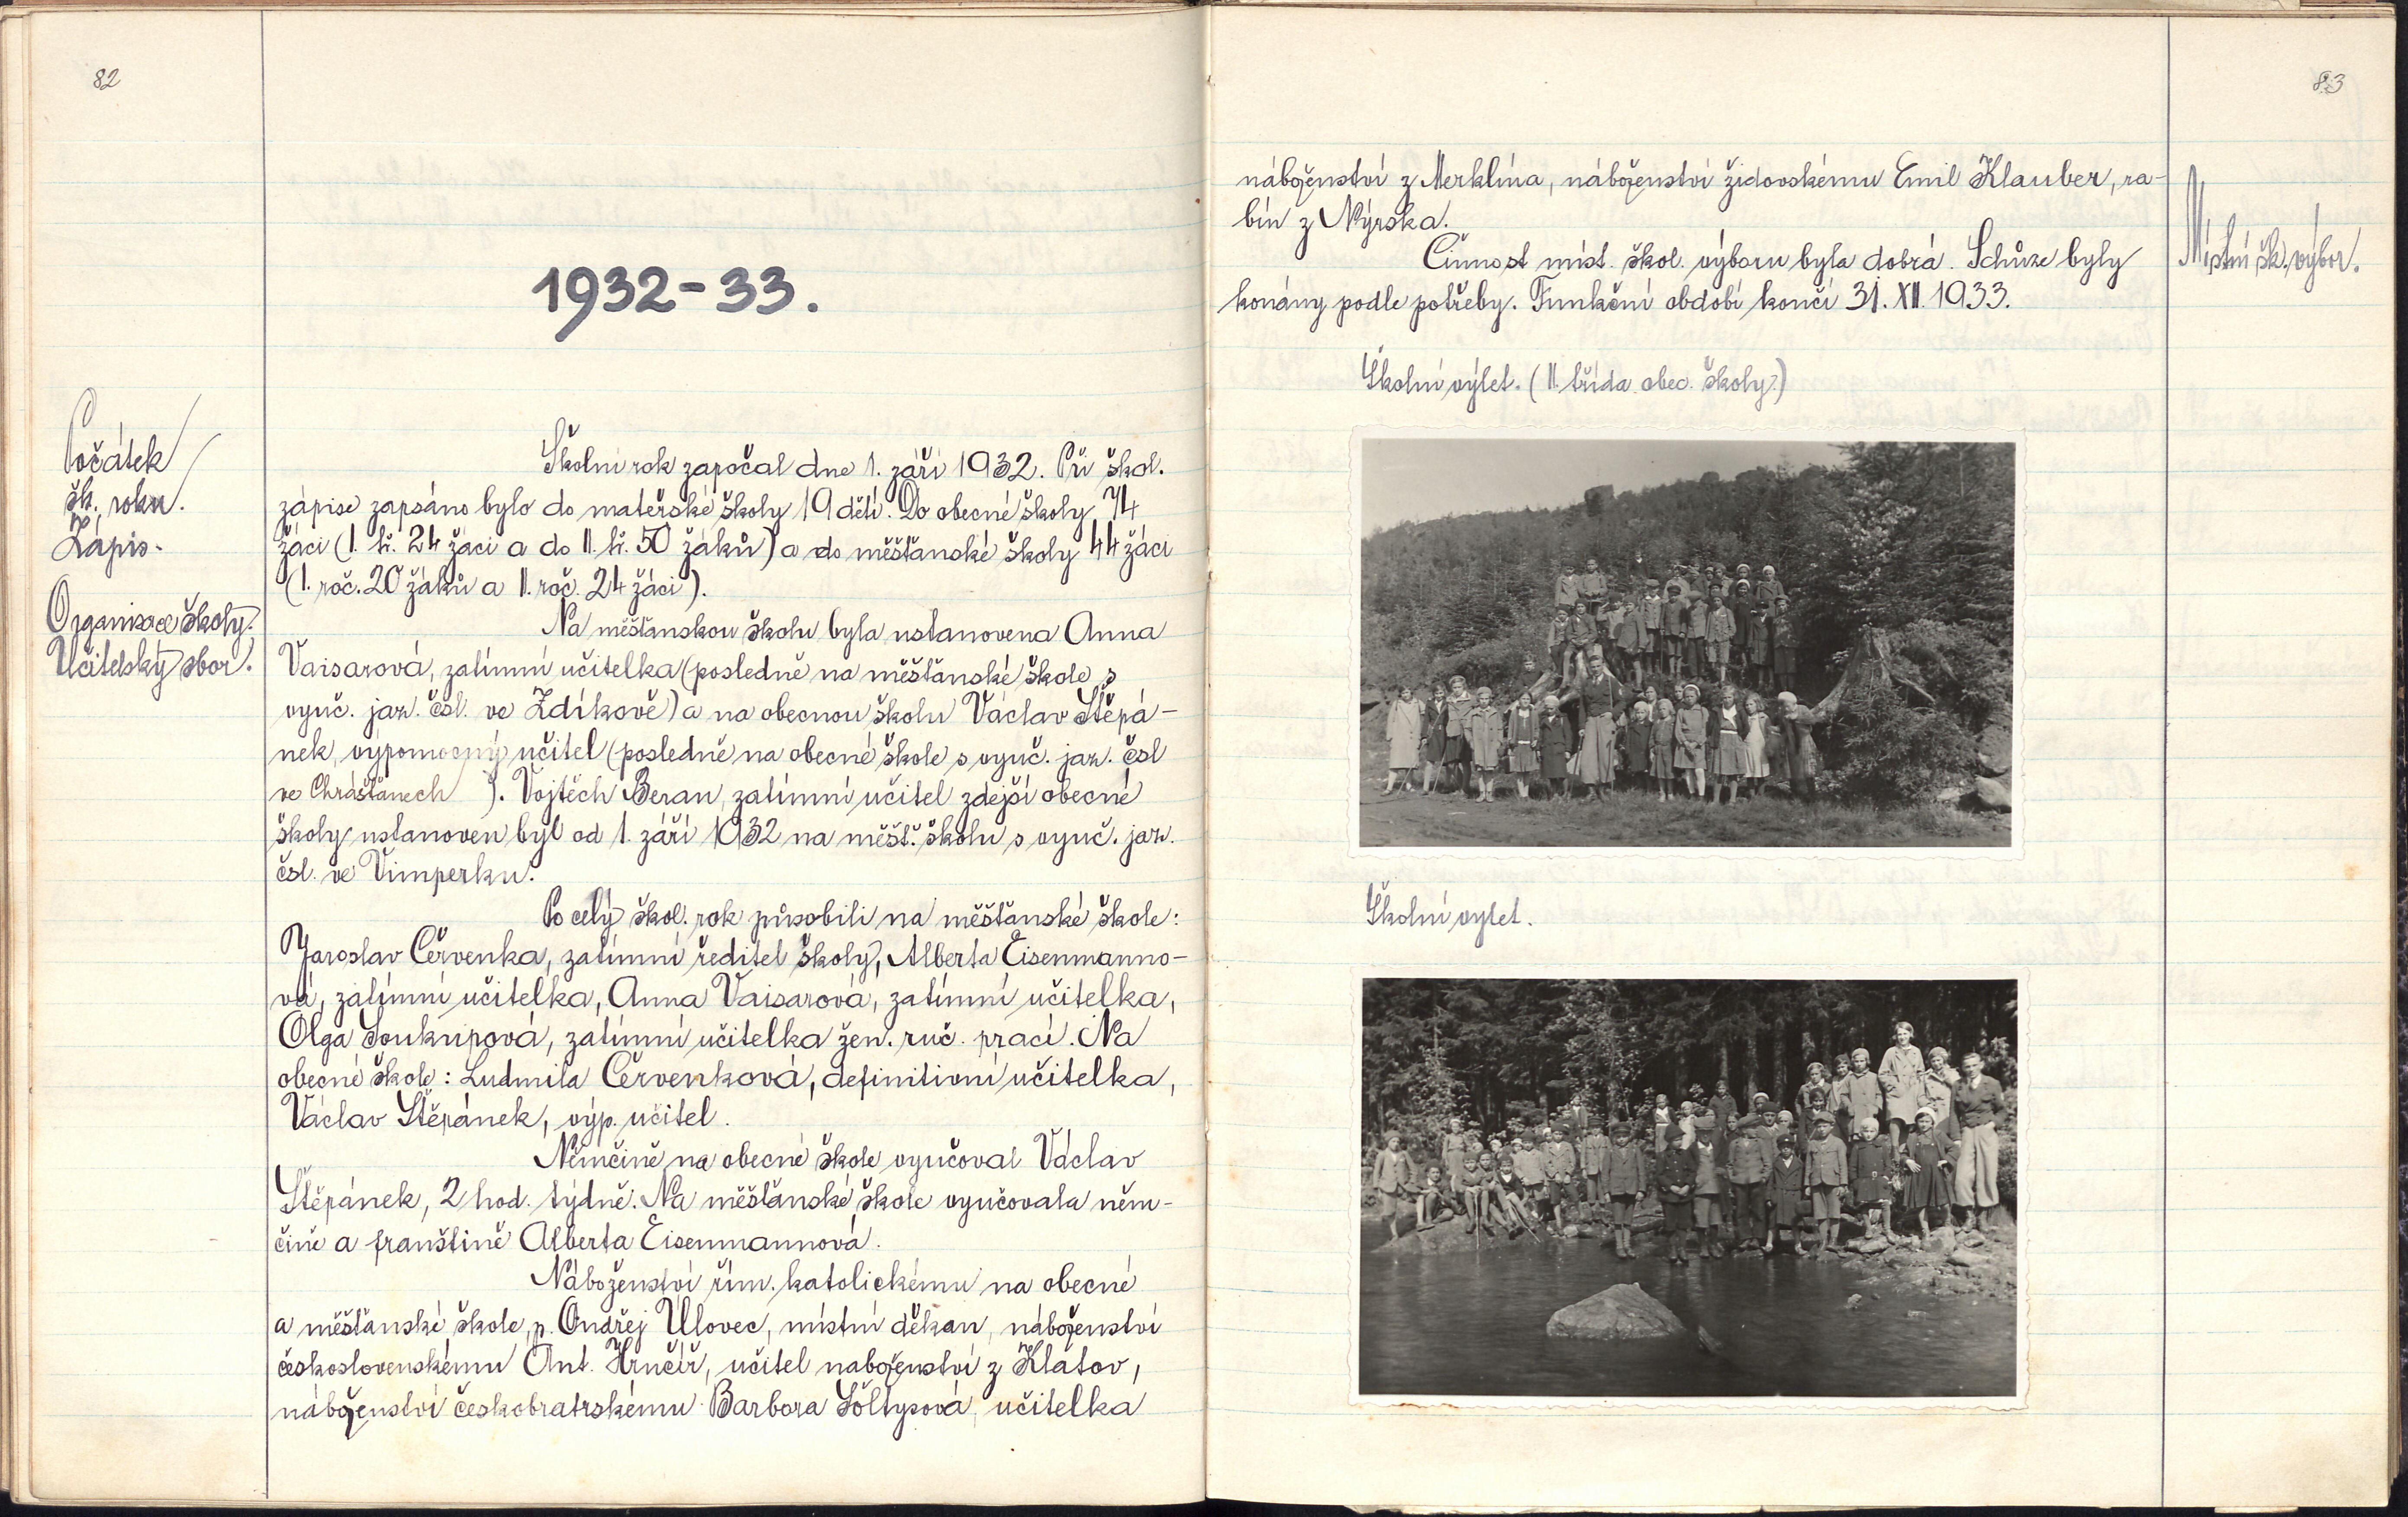 82
1932-33.
Počátek
šk. roku.
Zápis.
Školní rok započal dne 1. září 1932. Při škol.
zápise zapsáno bylo do mateřské školy 19 dětí. Do obecné školy 74
žáci (I. tř. 24 žáci a do II. tř. 50 žáků) a do měšťanské školy 44 žáci
(I. roč. 20 žáků a II. roč. 24 žáci).
Organisace školy.
Učitelský sbor.
Na měšťanskou školu byla ustanovena Anna
Vaisarová, zatímní učitelka (posledně na měšťanské škole s
vyuč. jaz. čsl. ve Zdíkově) a na obecnou školu Václav Štěpá-
nek, výpomocný učitel (posledně na obecné škole s vyuč. jaz. čsl
ve Chrášťanech ). Vojtěch Beran, zatímní učitel zdejší obecné
školy ustanoven byl od 1. září 1932 na měšť. školu s vyuč. jaz.
čsl. ve Vimperku.
Po celý škol. rok působili na měšťanské škole:
Jaroslav Červenka, zatímní ředitel školy, Alberta Eisenmanno-
vá, zatímní učitelka, Anna Vaisarová, zatímní učitelka,
Olga Soukupová, zatímní učitelka žen. ruč. prací. Na
obecné škole: Ludmila Červenková, definitivní učitelka,
Václav Štěpánek, výp. učitel.
Němčině na obecné škole vyučoval Václav
Štěpánek, 2 hod. týdně. Na měšťanské škole vyučovala něm-
čině a franštině Alberta Eisenmannová.
Náboženství řím. katolickému na obecné
a měšťanské škole p. Ondřej Úlovec, místní děkan, náboženství
československému Ant. Hrnčíř, učitel naboženství z Klatov,
náboženství českobratrskému Barbora Šöltysová, učitelka
83
náboženství z Merklína, náboženství židovskému Emil Klauber, ra-
bín z Nýrska.
Místní šk. výbor.
Činnost míst. škol. výboru byla dobrá. Schůze byly
konány podle potřeby. Funkční období končí 31. XII. 1933.
Školní výlet. (II. třída obec. školy.)
Školní vylet.